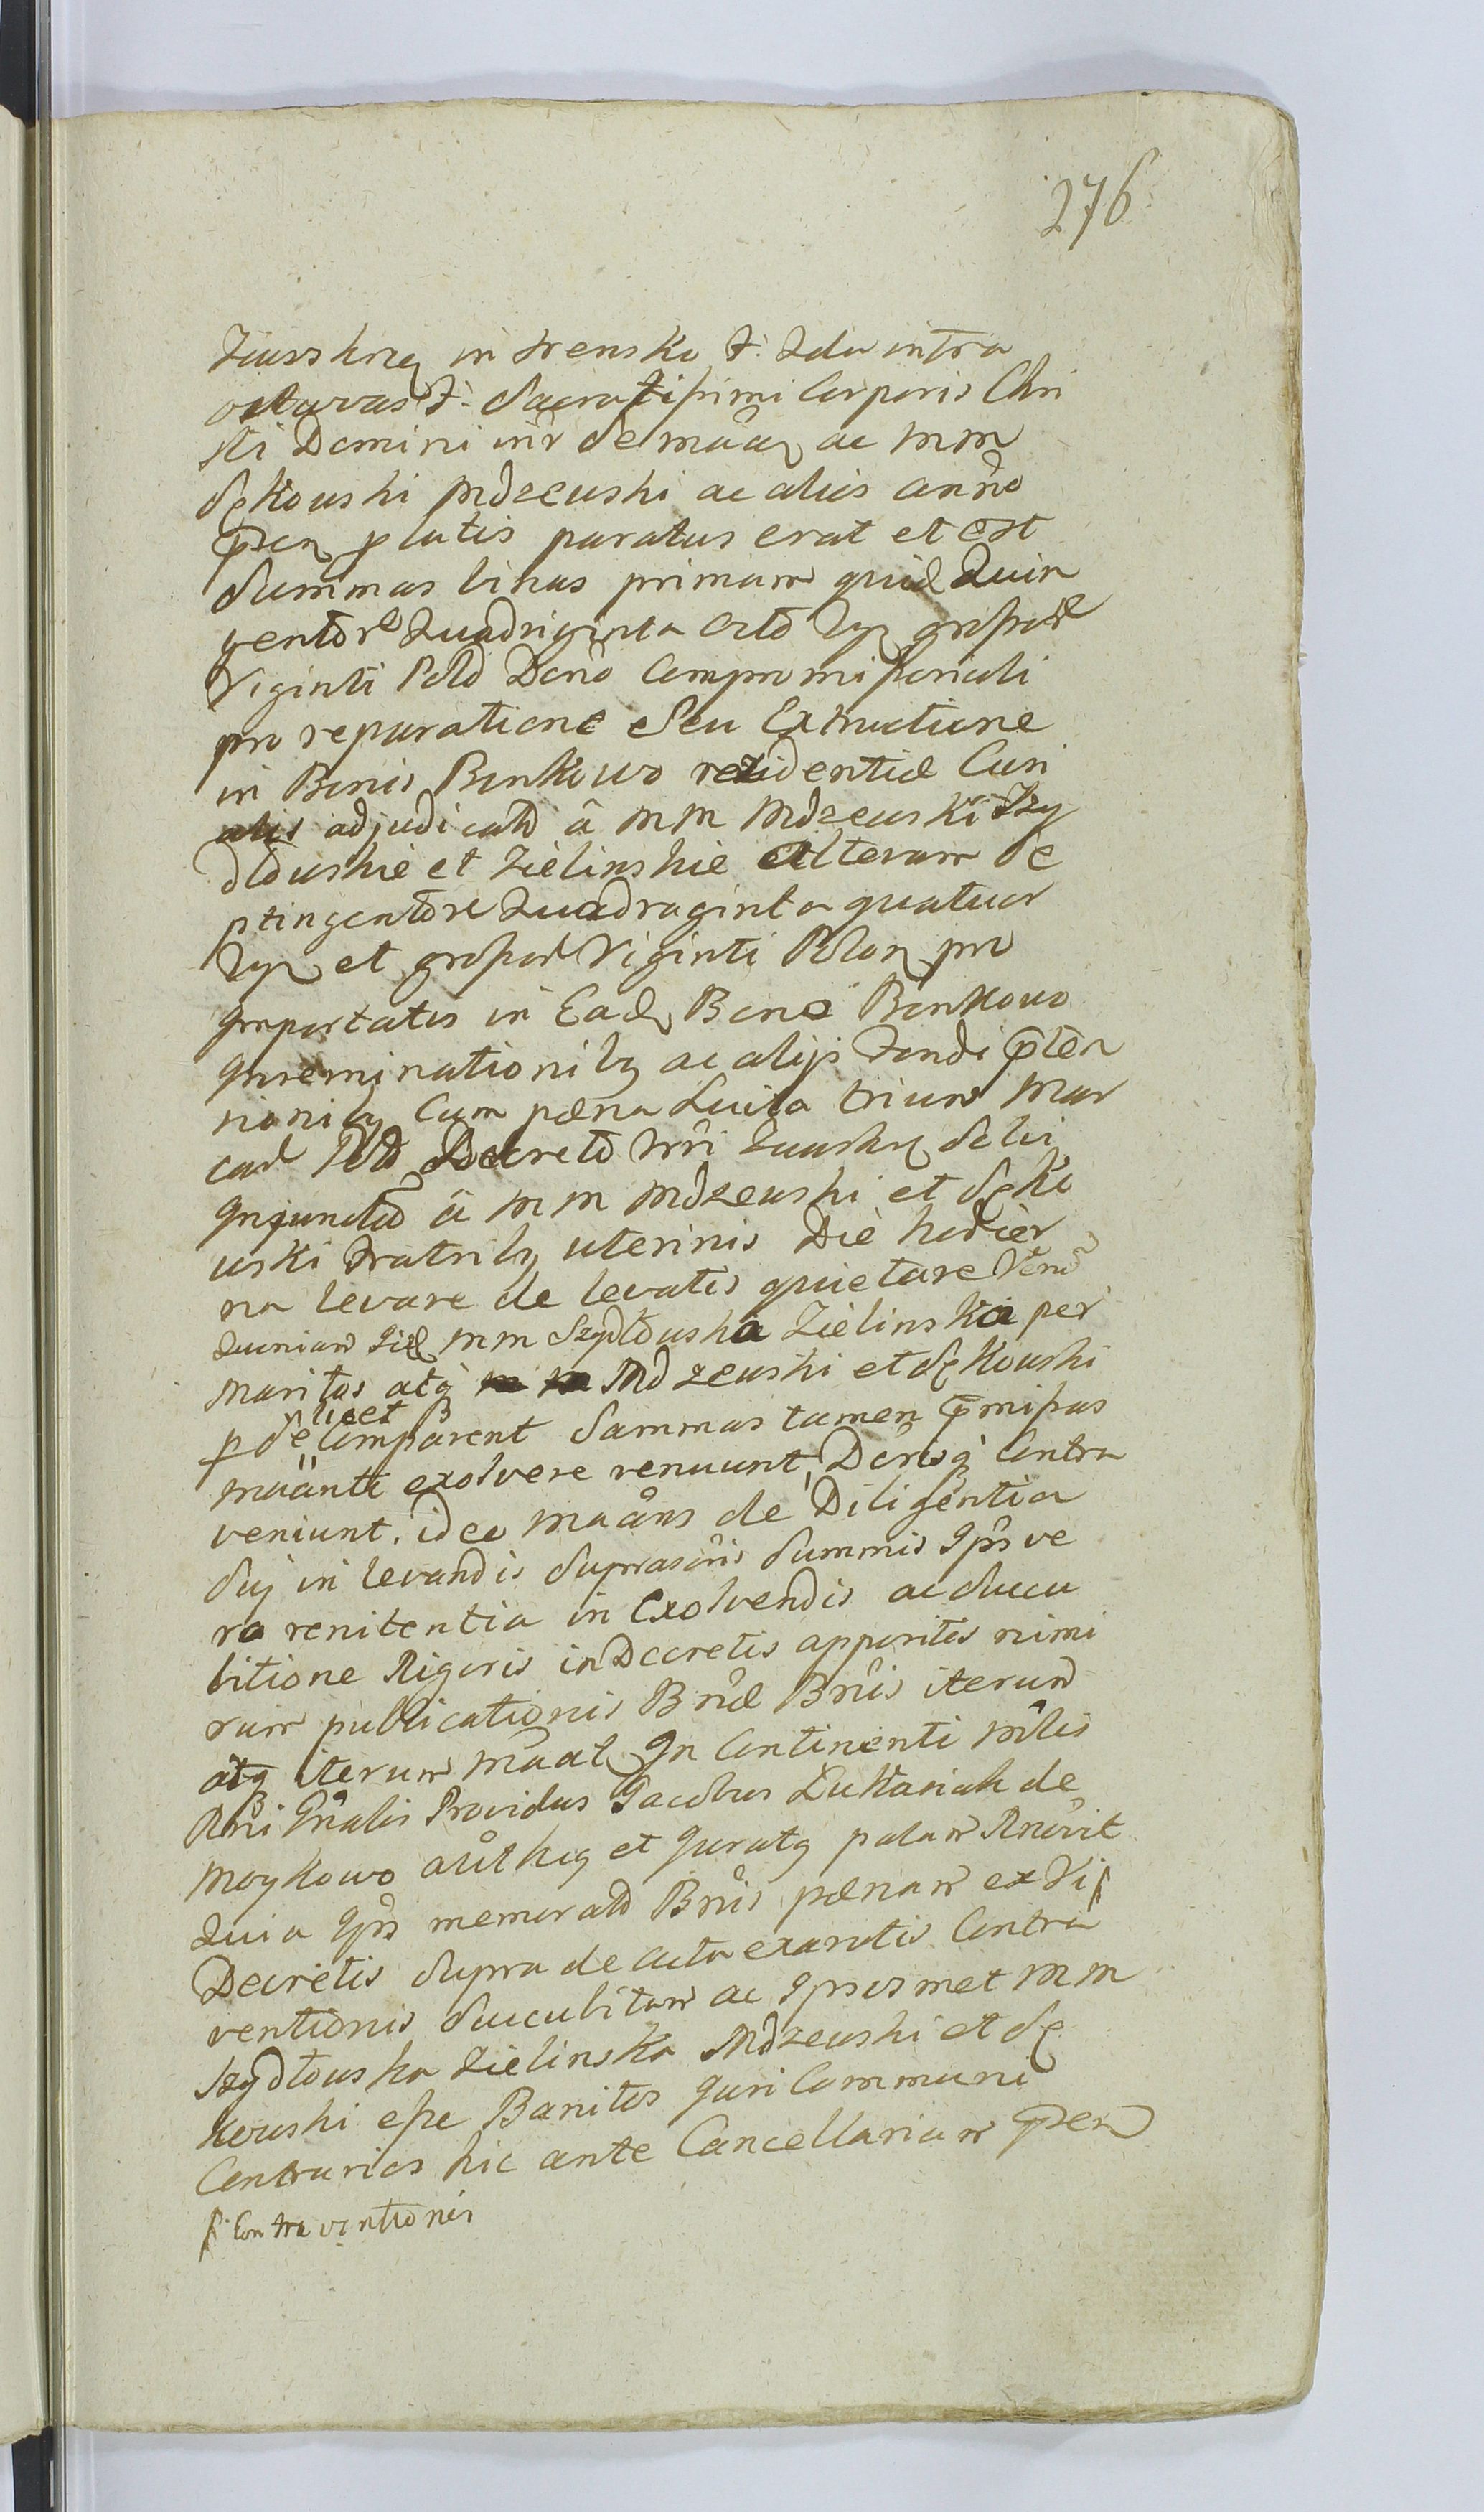 276
in Srensko F. 2da intra
octavas F. Sacratissimi Corporis Chri
sti Domini inr se maaz ac MM
Sękowski Mdzewski ac aliis anno
latis paratus erat et est
Summas binas primam quid Quin
gentor Quadriginta octo grossor
Viginti Polo Dono Compromissoriali
pro reparatione Seu Extructione
in Bonis Bonkowo rezidentiæ Curi
alis adjudicato â MM Mdzewski Szy
dłowskie et Zielinskie Alteram Se
ptingentor Quadraginta quatuor
et grossor Viginti Polon pro
Importatis in Ead Bona Bonkowo
Inseminationibq ac alijs Fundi
nionibq Cum pœna Luita trium Mar
car Pol Decreto
Injunctâ â MM Mdzewski et Sęko
wski Fratribq uterinis Die hodier
na levare de levatis quietare
Quoniam MM Szydłowska Zielinska per
Maritos atq Mdzewski et Sękowski
licet
p se Comparent Summas tamen pmissas
Maanti exolvere renuunt, Dcrisq Contra
veniunt. ideo Maans de Diligentia
Suj in levandis Suprascris Summis Ips ve
ro renitentia in Exolvendis ac Succu
bitione Rigoris in Decretis appositis nimi
rum publicationis Bnæ Bnis iterum
atq iterum Maat In Continenti Mlis
Rni Gnalis Providus Jacobus Lukasiak de
Moykowo auth et Juratq palam Rnovit
Quia Ips memorato Bnis pœnam ex Vi
Decretis Supra de acta exaratis Contra
ventionis Succubitam ac Ipsosmet MM
Szydłowska Zielinska Mdzewski et Sę
kowski esse Banitos Juri Communi
Contrarios hic ante Cancellariam
Contraventionis